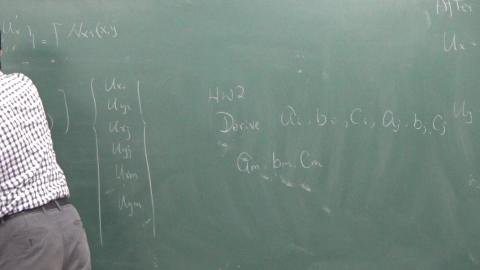 After
Ux
Uxi
Uyi
Uxj
Uyj
Uxm
Uym
HW2
Derive ai, bi, ci, aj, bj, cj
am, bm, cm
Uy